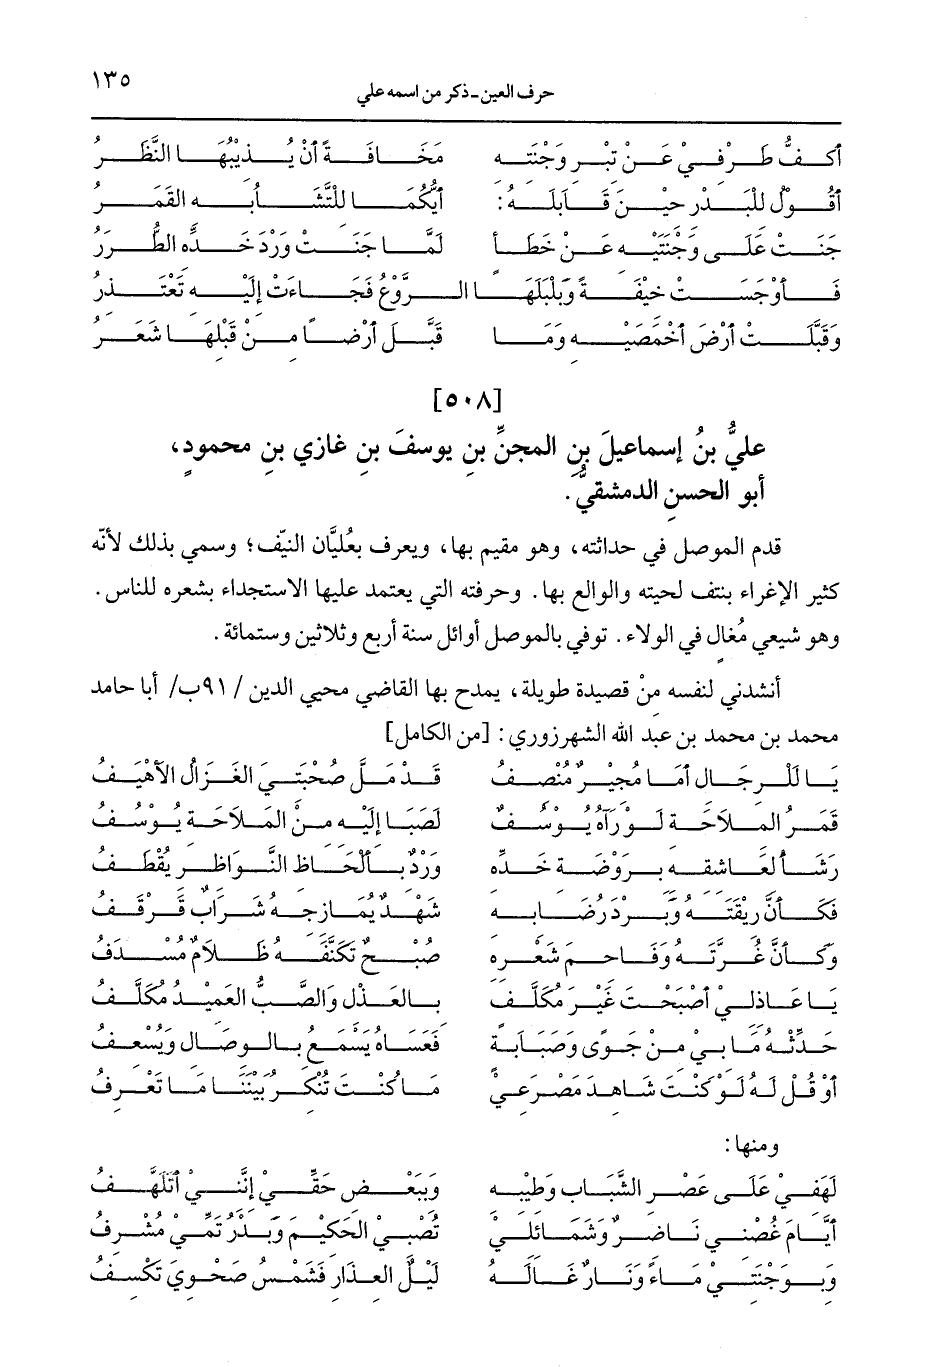 ١٣٥
حرف العين - ذكر من اسمه علي
أكفُّ طرْفيْ عنْ تبْرِ وَجْنتهِ مخافةً أنْ يُذيْبُها النَّظرُ
أقُوْلُ للْبَدْرِ حيْنَ قابلهُ: أيُّكُما للتَّشَابُهِ القَمَرُ
جَنَتْ عَلَى وَجْنَتَيْهِ عَنْ خَطَأ لَمَّا جَنَتْ وَرْدَ خَدِّهِ الطُّرَرُ
فَأَوْجَسَتْ خيْفَةً وَبَلْبَلَهَا الرَّوْعُ فَجَاءَتْ إِلَيْهِ تَعْتَذرُ
وَقَبَّلَتْ أرْضَ أخْمَصَيْهِ وَمَا قَبَّلَ أرْضاً مِنْ قَبْلِهَا شَعَرُ
[٥٠٨]
عليُّ بنُ إسماعيلَ بنِ المجنِّ بنِ يوسفَ بنِ غازي بنِ محمودٍ،
أبو الحسنِ الدمشقيُّ.
قدم الموصل في حداثته، وهو مقيم بها، ويعرف بعُليَّان النيّف؛ وسمي بذلك لأنّه
كثير الإغراء بنتف لحيته والوالع بها. وحرفته التي يعتمد عليها الاستجداء بشعره للناس.
وهو شيعي مُغالٍ في الولاء. توفي بالموصل أوائل سنة أربع وثلاثين وستمائة.
أنشدني لنفسه منْ قصيدة طويلة، يمدح بها القاضي محيي الدين /٩١ب/ أبا حامد
محمد بن محمد بن عبد الله الشهرزوري: [من الكامل]
يَا للْرِجَالِ أمَا مُجيْرٌ مُنْصفُ قَدْ مَلَّ صُحْبَتيَ الغَزَالُ الأهْيَفُ
قَمَرُ المَلاَحَةِ لَوْ رَآهُ يُوْسُفٌ لَصَبَا إلَيْهِ منَ المَلاَحَةِ يُوْسُفُ
رَشَأ لعَاشقهِ بِرَوْضَةِ خَدِّهِ وَرْدٌ بِأَلْحَاظِ النَّوَاظِرِ يُقْطَفُ
فَكَأَنَّ رِيْقَتَهُ وَبَرْدَ رُضَابِهِ شَهْدٌ يُمَازِجُهُ شَرَابٌ قَرْقَفُ
وَكَأَنَّ غُرَّتَهُ وَفَاحِمَ شَعْرِهِ صُبْحٌ تَكَنَّفَهُ ظَلاَمٌ مُسْدفُ
يَا عَاذلِيْ أصْبَحْتَ غَيْرَ مُكَلَّفٍ بِالعَذْلِ وَالصَّبُّ العَمِيْدُ مُكَلَّفُ
حَدِّثْهُ مَا بِي مِنْ جَوًى وَصَبَابَةٍ فَعَسَاهُ يَسْمَعُ بِالوِصَالِ وَيُسْعِفُ
أوْ قُلْ لَهُ لَوْ كُنْتَ شَاهِدَ مَصْرَعِيْ مَا كُنْتَ تُنْكِرُ بَيْنَنَا مَا تَعْرِفُ
ومنها:
لَهَفيْ عَلَى عَصْرِ الشَّبَابِ وَطيْبِهِ وَبِبَعْضِ حَقِّيْ إنَّنيْ أتَلَهَّفُ
أيَّامَ غُصْنِي نَاضِرٌ وَشَمَائلِيْ تُصْبِيْ الحَكيْمَ وَبَدْرُ تَمِّيْ مُشْرِفُ
وَبِوَجْنَتِيْ مَاءٌ وَنَارٌ غَالَهُ لَيْلُ العذَارِ فَشَمْسُ صَحْوِيَ تَكْسفُ